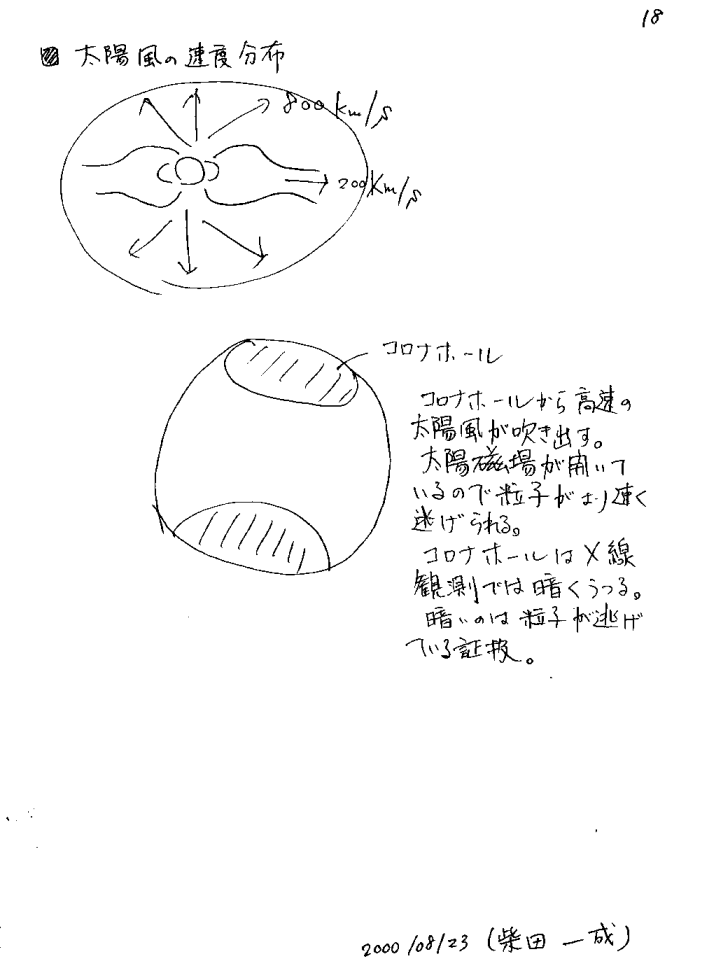 18
太陽風の速度分布
800 km/s
200 Km/s
コロナホール
コロナホールから高速の
太陽風が吹き出す。
太陽磁場が開いて
いるので粒子がより速く
逃げられる。
コロナホールはX線
観測では暗くうつる。
暗いのは粒子が逃げ
ている証拠。
2000/08/23 (柴田 一成)